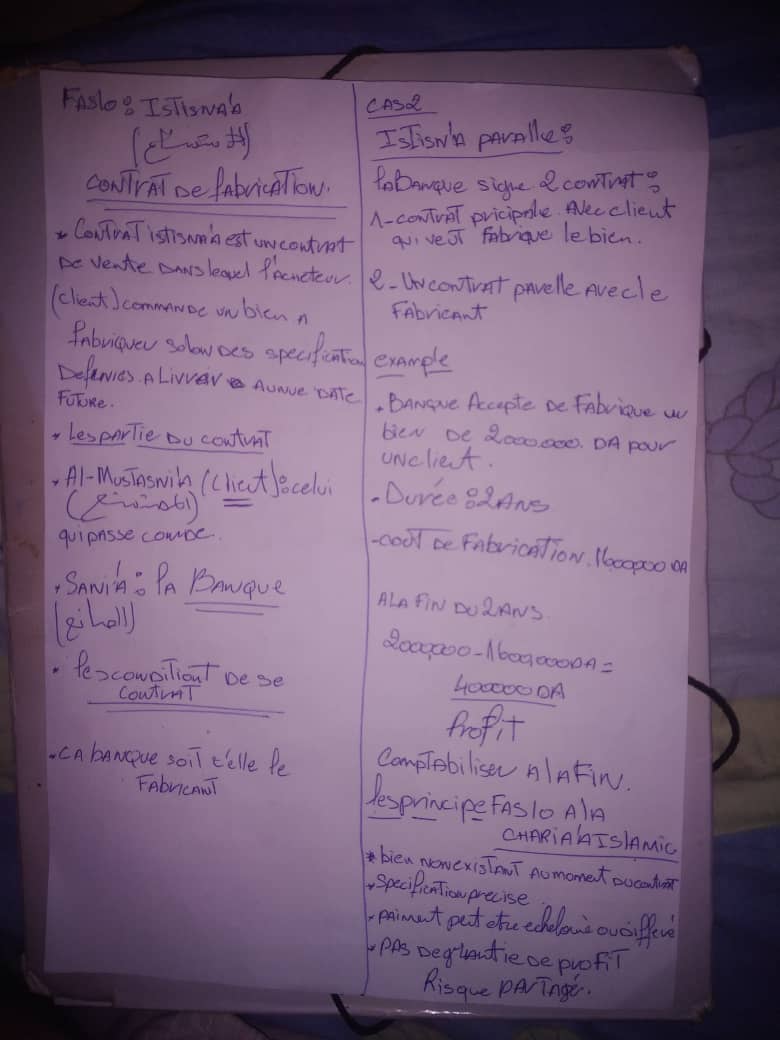 FASlo : ISTISNA'A
(الاستصناع)
CONTRAT DE FABRICATION.
* CONTRAT ISTISNA'A EST UN CONTRAT
DE VENTE DANS lequel l'Acheteur.
(client) COMMANDE UN bien A
fabriquer selon DES specification
Definies. A Livrer A UNUE DATE
FUTURE.
* Les PARTIE DU CONTRAT
* Al-MUSTASNI'A (Client) : celui
(المستصنع)
qui passe comde.
* SANI'A : lA BANQUE
(الصانع)
* les condItionT De se
CONTRAT
* CA BANQUE SOIT t'elle le
FABRICANT
CAS2
ISTISN'A PARAlle :
la BANQUE signe 2 CONTRAT :
1-CONTRAT pricipale. Avec client
qui veut fabrique le bien.
2-UN CONTRAT pavelle AVEC le
FABRICANT
example
. BANQUE Accepte DE FABRIQUE UN
bien DE 2000.000. DA POUR
UN client.
- Durée : 2 ANS
-COÛT DE FABRICATION. 1600,000 DA
A LA FIN DU 2 ANS.
2000,000-1600,000DA=
400000 DA
Profit
COMPTABILISER A lA FIN.
les principe FASlo A lA
CHARIA'A ISlAMIC
* bien NON EXISTANT AU MOMENT DU CONTRAT
* Specification precise.
- PAIMENT peut etre echeloné ou differé
* PAS De grantie De profit
Risque PARTAgé.